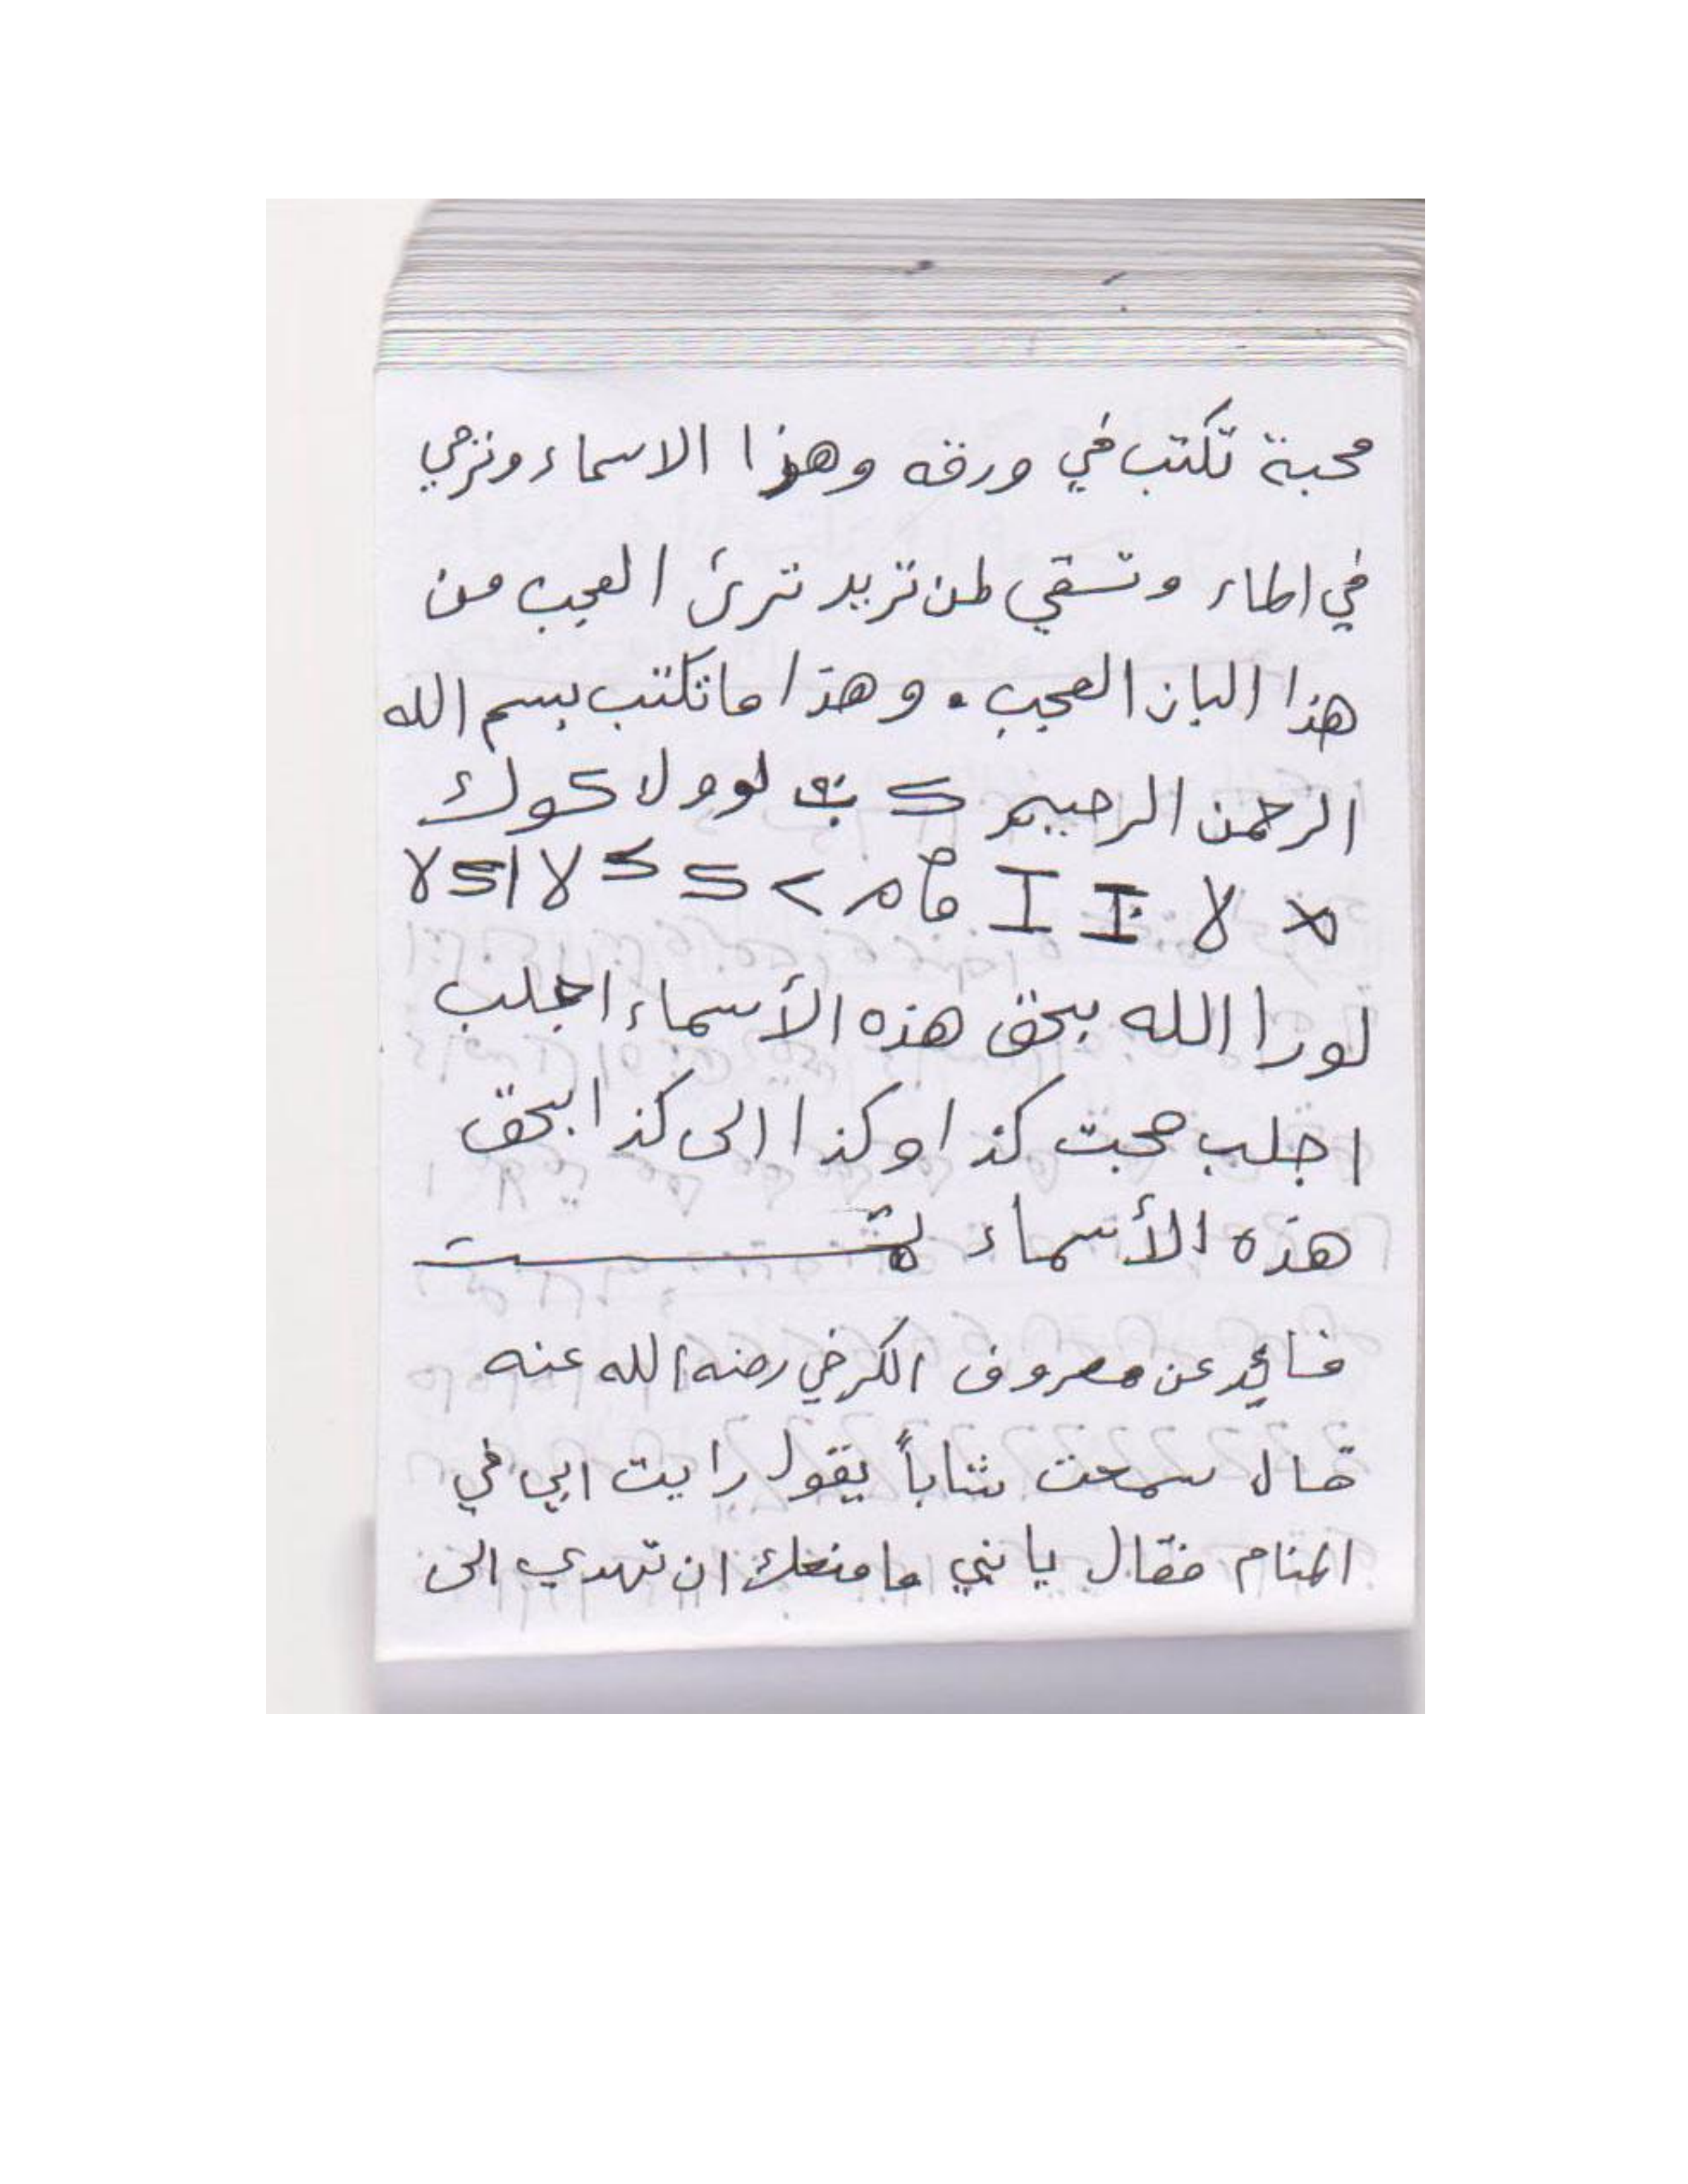 محبة تكتب في ورقه وهذا الاسماء وترمي
في الماء وتسقي لمن تريد ترئ العجب من
هذا الباز العجب . وهذا ما تكتب بسم الله
الرحمن الرحيم لوولا كوك
لا I I لا ا لا
لورا الله بحق هذه الأسماء اجلب
اجلب محبت كذا وكذا الى كذا بحق
هذه الأسماء تمت
فائد عن معروف الكرخي رضه الله عنه
قال سمعت شاباً يقول رايت ابي في
المنام فقال يا بني ما منعك ان تهدي الى